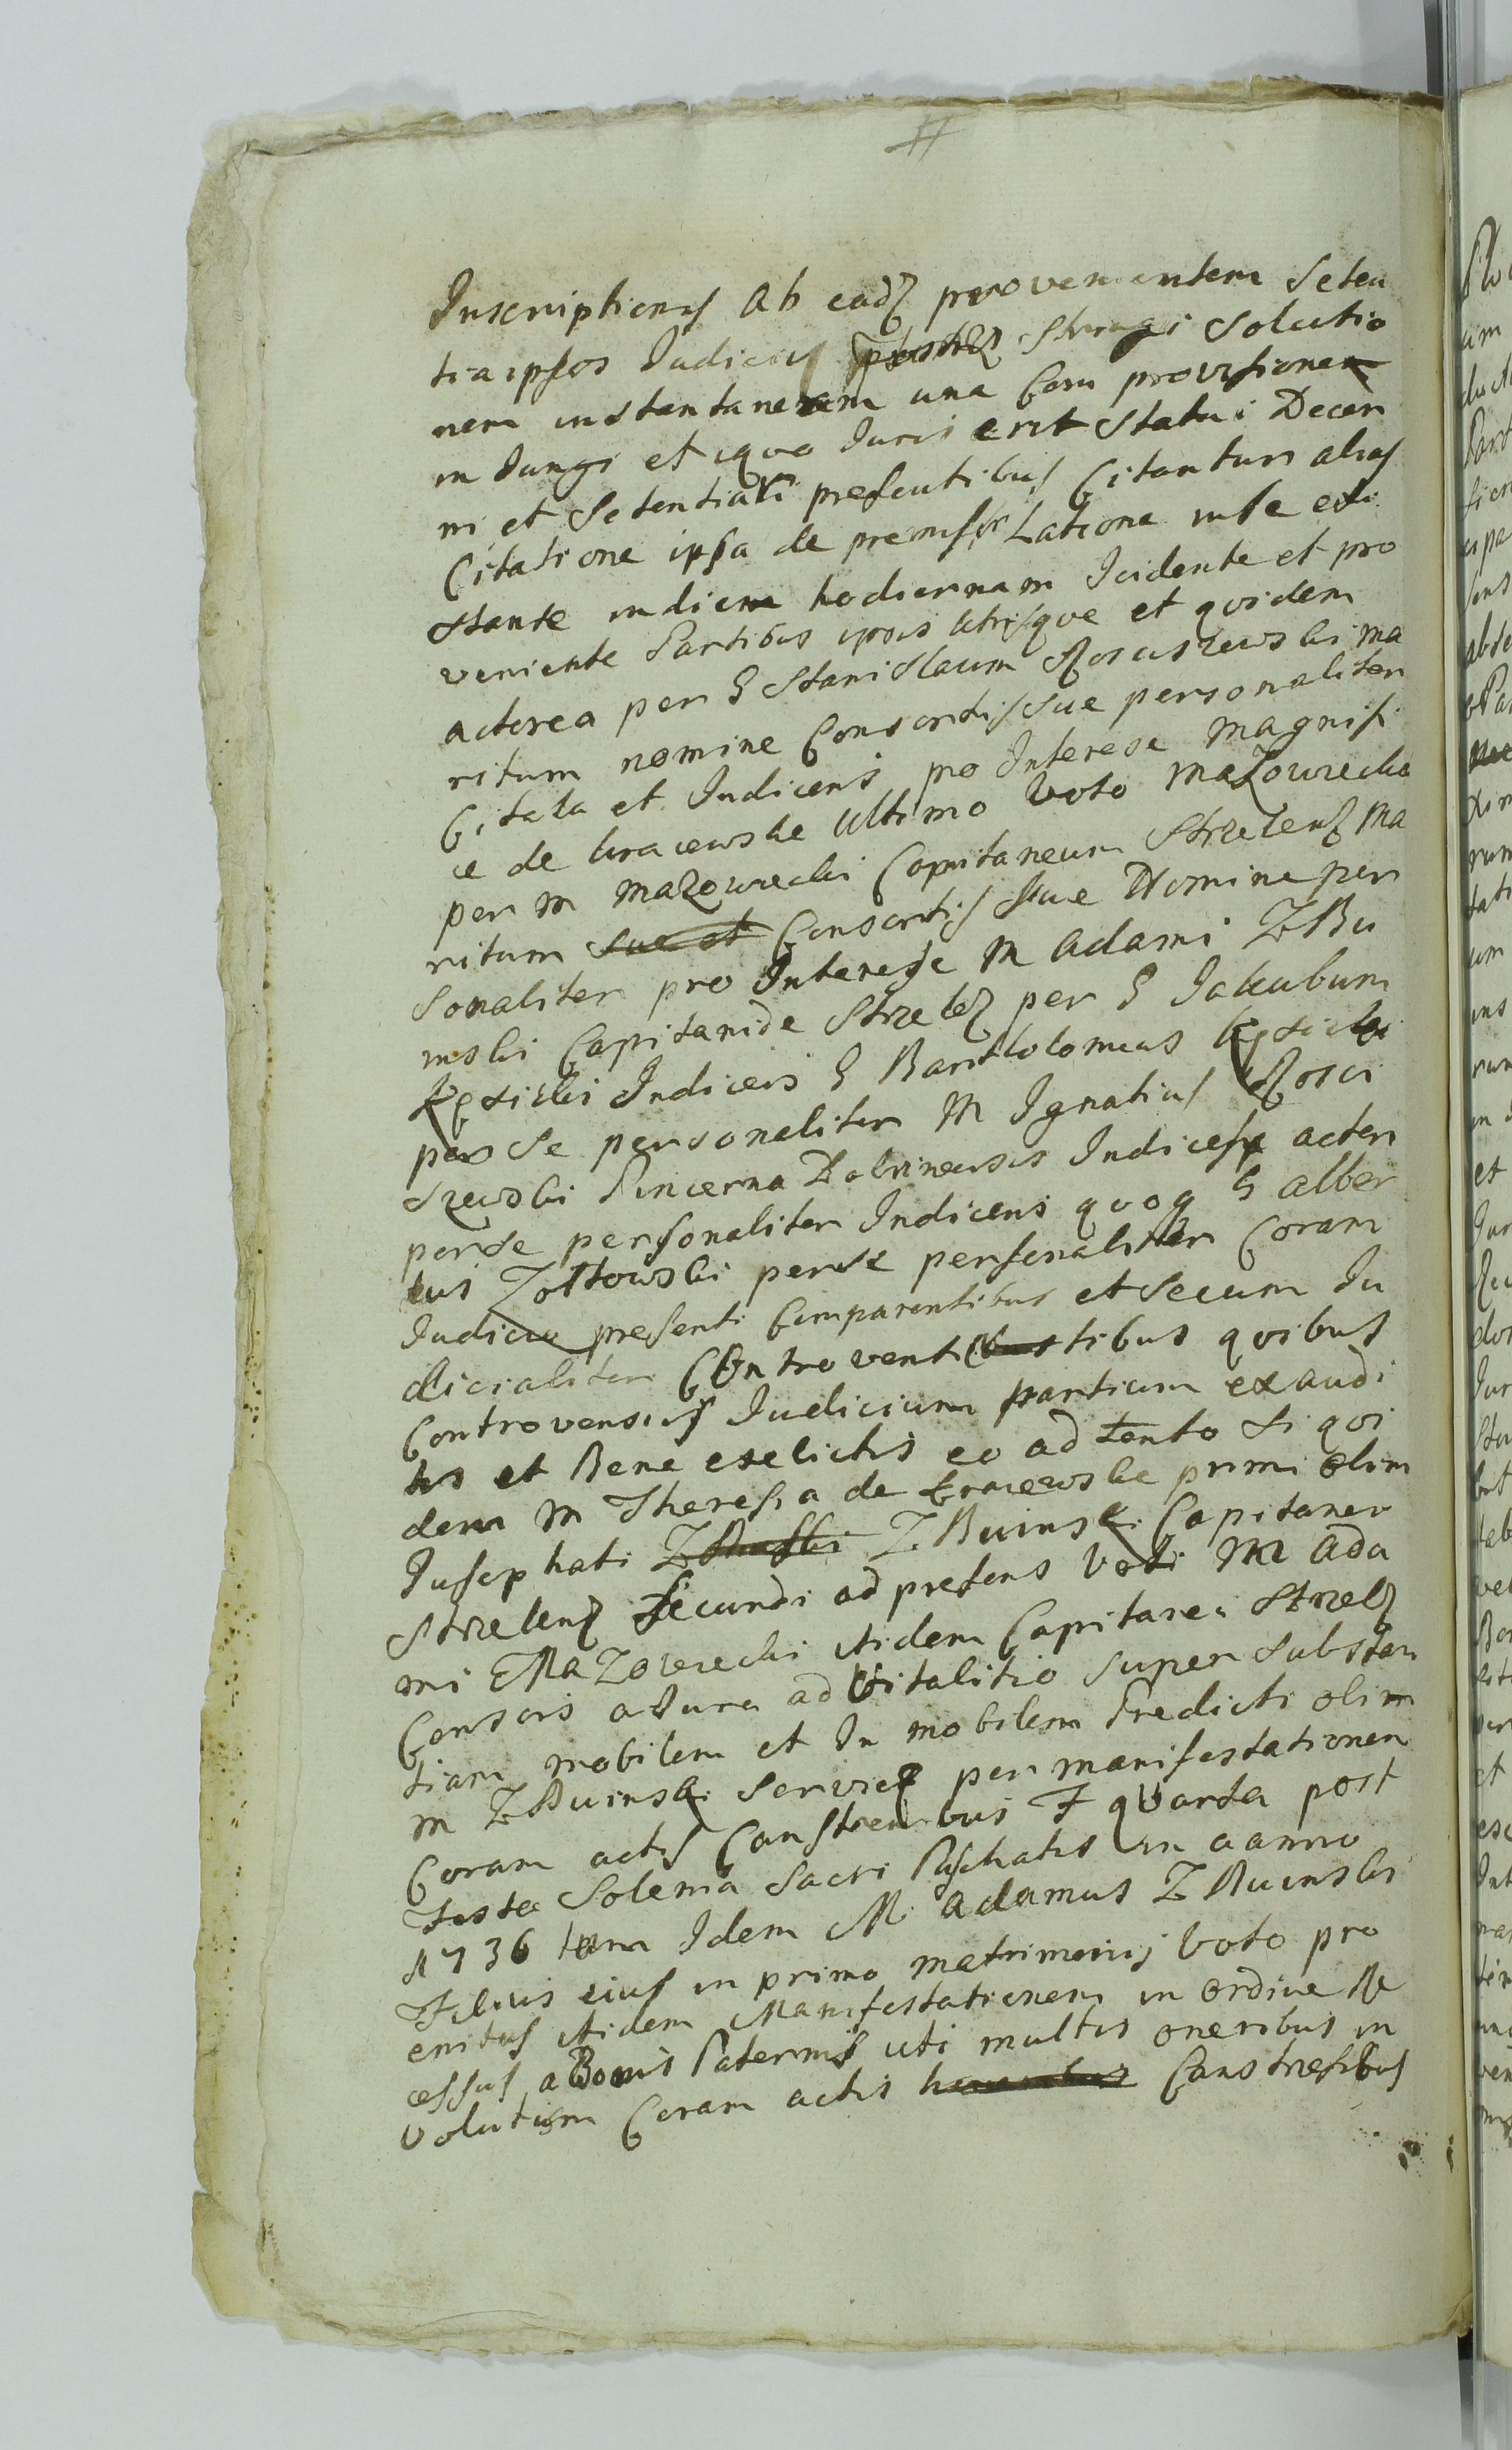 Inscriptionis ab eadz provenientem Seten
tia ipsos Judicus Stringi Solutio
nem instantaneam una Cum provisionem
in Jungi et iquo Juris erit Statui Decer
ni et Setentiari presentibus Citantur alias
Citatione ipsa de premissor Latione inse exi
stante in diem hodiernam Icidente et pro
veniente Partibus ipsis Utrisque et quidem
actorea per G Stanislaum Rosciszewski ma
ritum nomine Consortis sue personaliter
Citata et Indicens pro Interese Magnifi
ce de kracewske Ultimo Voto Mazowiecka
per M Mazowiecki Capitaneum Strzelenz Ma
ritum sue et Consortis sue Nomine per
sonaliter pro Interesse M Adami ZBu
inski Capitanide Strzelz per G Jakubum
Kęsicki Indicens G Bartholomeus Kęsicki
per se personaliter M Ignatius Rosci
szewski Pincerna Dobrinensis Indicess acter
perse personaliter Indicens quoq G alber
tus Zoltowski perse personaliter Coram
Judicio presenti Comparentibus et Secum Ju
dicialiter Controventibus quibus
Controversiis Judicium partium exaudi
tis et Bene exelictis eo ad tento Si qui
dem M Theresia de kracewske primi olim
Jusephati ZBuinski Capitanei
Strzelenz Secundi ad presens Voti M Ada
mi Mazowiecki itidem Capitanei Strzelz
Consors a Jure ad Vitalitio super Substan
tiam mobilem et In mobilem Predicti olim
M ZBuinski Serviez per manifestationem
Coram actis Canstrensibus F quarta post
Festa Solemia Sacri Paschatis in aanno
1736 tum Idem M. Adamus ZBuinski
Filius eius in primo matrimonij Voto pro
enitus itidem Manifestationem in ordine Re
cessus a Bonis Paternis uti multis oneribus in
volutism Coram actis Canstresibus